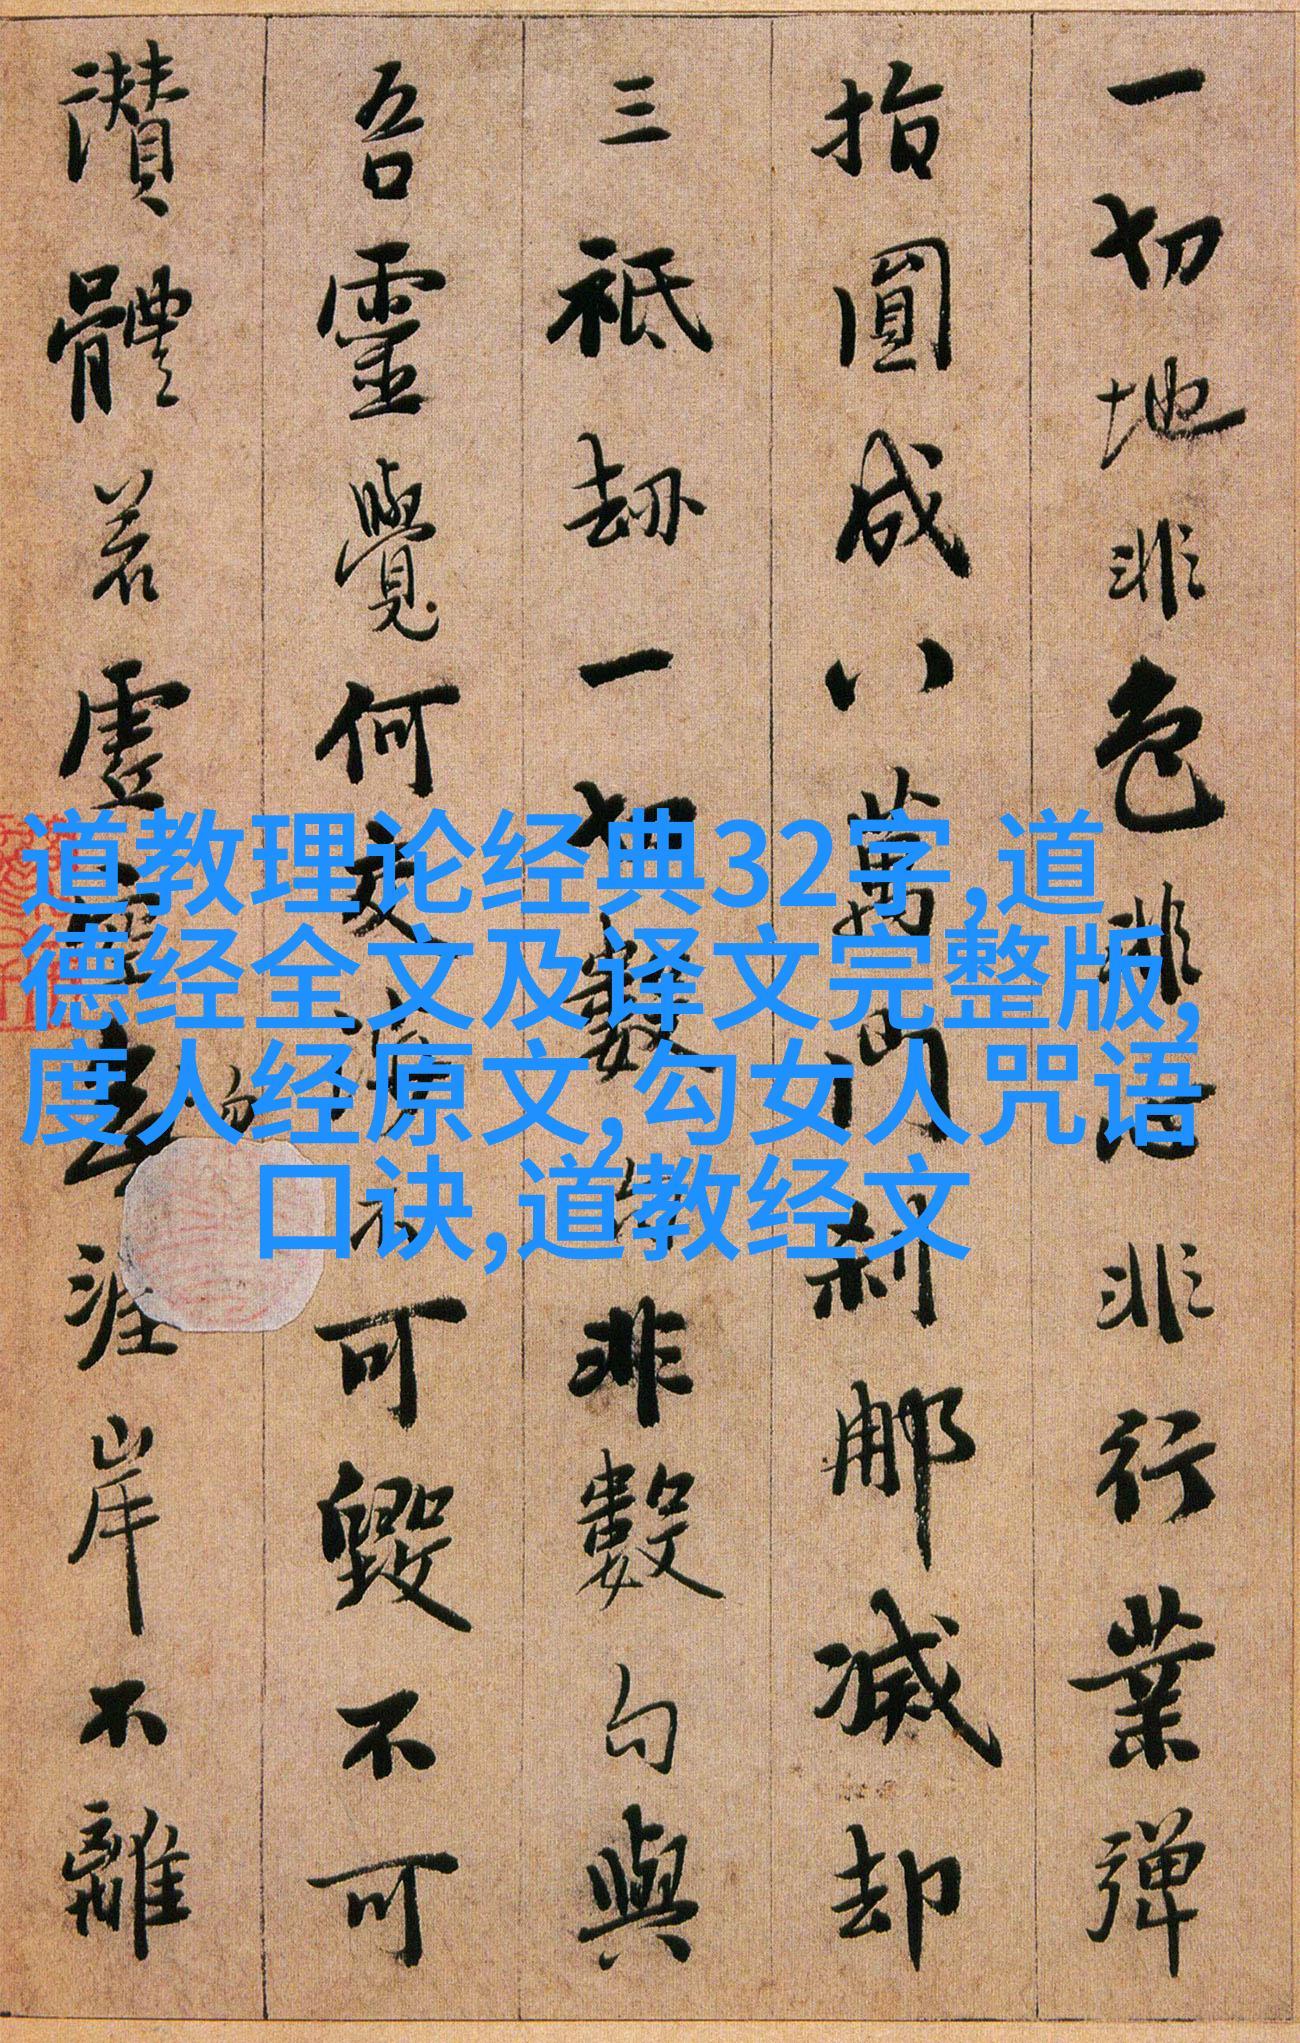 一切地非色非心非行業彈
指圓成八萬門刹那滅却
三祇劫一切數句非數句與
吾靈覺何交涉不可毀不可
讚體若虛空勿涯岸不離
道教理论经典32字,道
德经全文及译文完整版,
度人经原文,勾女人咒语
口诀,道教经文